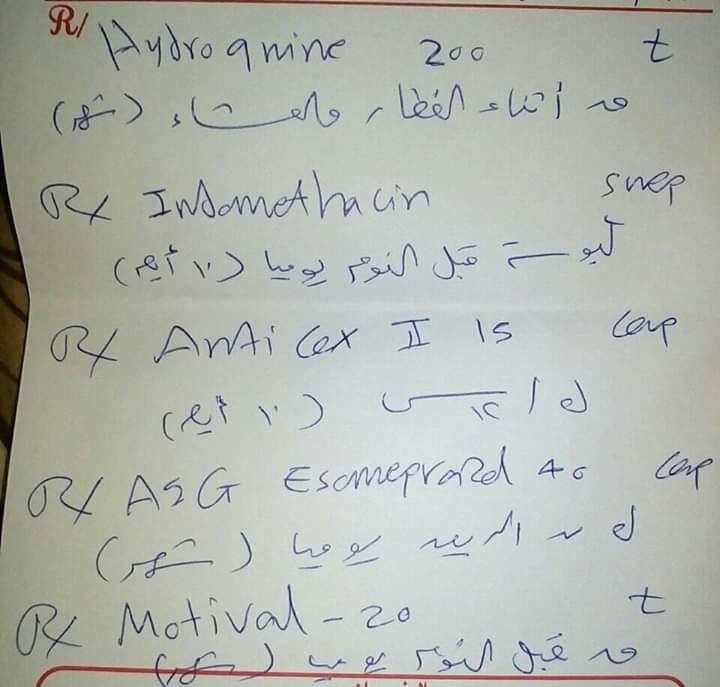 R/
Hydroquine 200 t
أثناء الفطار والعشاء (شهر)
Rx Indomethacin supp
لبوسة قبل النوم يوميا (١٠ أيام)
Rx Anti Cox II 15 cap
ك / ١٢ س (١٠ أيام)
Rx ASG Esomeprazol 40 cap
ك يوميا (شهر)
Rx Motival - 20 t
قبل النوم يوميا (شهر)